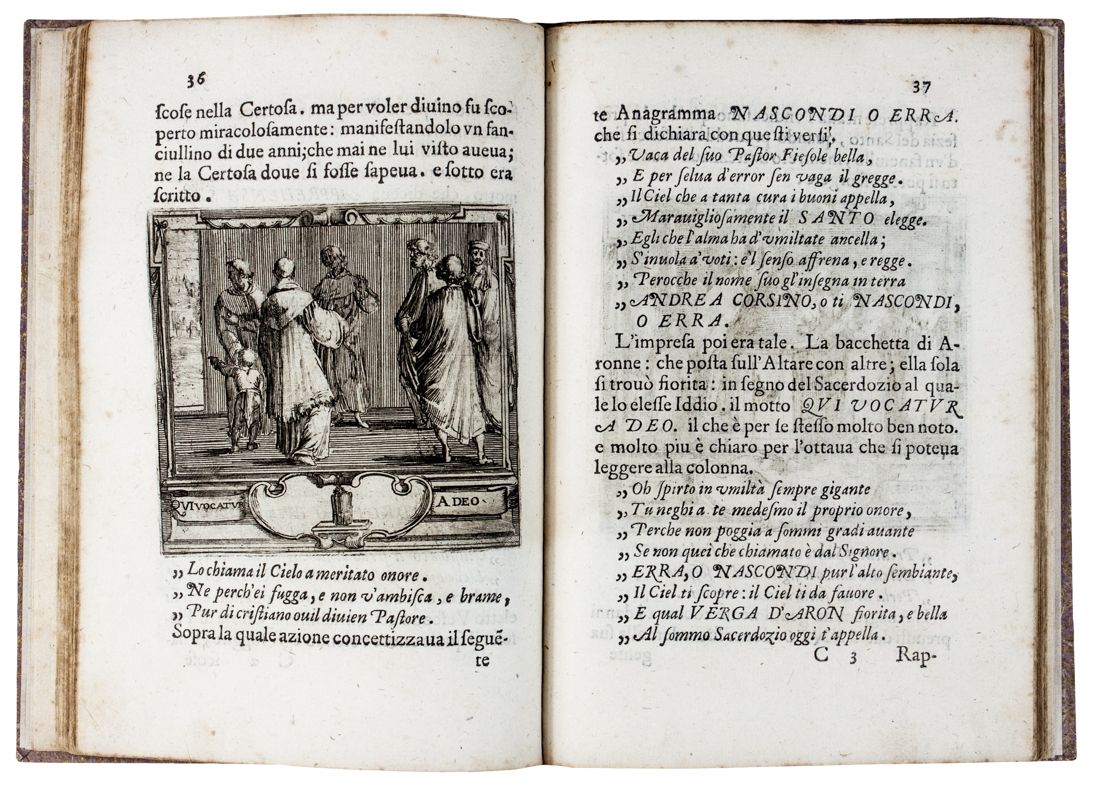 36
ſcoſe nella Certoſa. ma per voler diuino fu ſco-
perto miracoloſamente: manifeſtandolo vn fan-
ciullino di due anni; che mai ne lui viſto aueua;
ne la Certoſa doue ſi foſſe ſapeua. e ſotto era
ſcritto.
QVI VOCATVR A DEO
„ Lo chiama il Cielo a meritato onore.
„ Ne perch'ei fugga, e non v'ambiſca, e brame,
„ Pur di criſtiano ouil diuien Paſtore.
Sopra la quale azione concettizzaua il ſeguē-
te
37
te Anagramma NASCONDI O ERRA.
che ſi dichiara con queſti verſi,
„ Vaca del ſuo Paſtor Fieſole bella,
„ E per ſelua d'error ſen vaga il gregge.
„ Il Ciel che a tanta cura i buoni appella,
„ Marauiglioſamente il SANTO elegge.
„ Egli che l'alma ha d'vmiltate ancella;
„ S'inuola a'voti: e'l ſenſo affrena, e regge.
„ Perocche il nome ſuo gl'inſegna in terra
„ ANDREA CORSINO, o ti NASCONDI,
O ERRA.
L'impreſa poi era tale. La bacchetta di A-
ronne: che poſta ſull'Altare con altre; ella ſola
ſi trouò fiorita: in ſegno del Sacerdozio al qua-
le lo eleſſe Iddio. il motto QVI VOCATVR
A DEO. il che è per ſe ſteſſo molto ben noto.
e molto piu è chiaro per l'ottaua che ſi poteua
leggere alla colonna.
„ Oh ſpirto in vmiltà ſempre gigante
„ Tu neghi a te medeſmo il proprio onore,
„ Perche non poggia a ſommi gradi auante
„ Se non quei che chiamato è dal Signore.
„ ERRA, O NASCONDI pur l'alto ſembiante,
„ Il Ciel ti ſcopre: il Ciel ti da fauore.
„ E qual VERGA D'ARON fiorita, e bella
„ Al ſommo Sacerdozio oggi t'appella.
C 3 Rap-